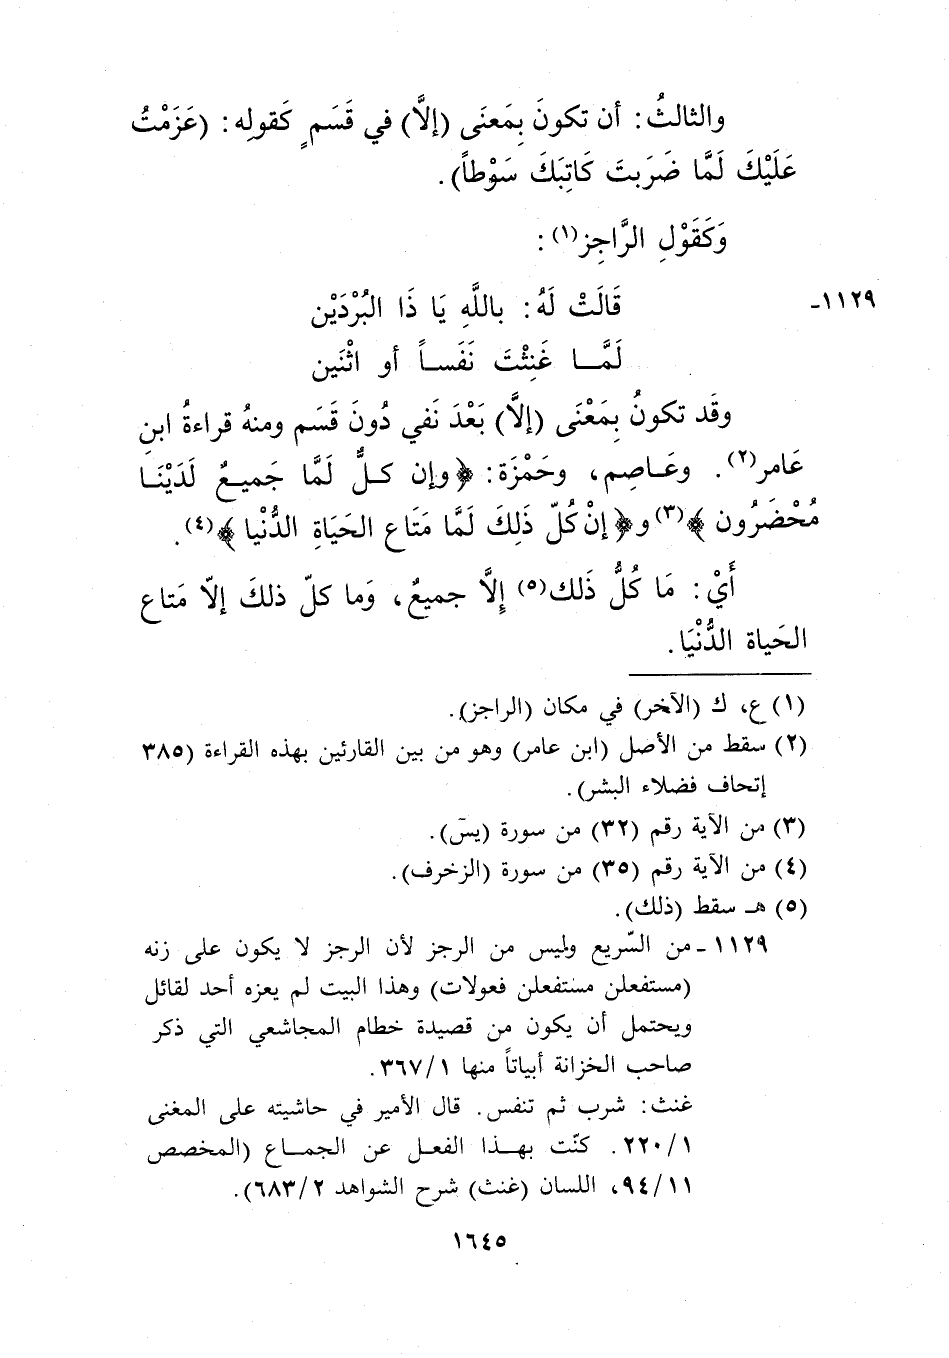 والثالثُ: أن تكونَ بِمَعنَى (إلَّا) في قَسَمٍ كَقولِه: (عَزَمْتُ
عَلَيْكَ لَمَّا ضَرَبتَ كَاتِبَكَ سَوْطاً).
وَكَقَوْلِ الرَّاجِز(١):
١١٢٩- قَالَتْ لَهُ: باللَّهِ يَا ذَا البُرْدَيْن
لَمَّـا غَنِثْتَ نَفَسـاً أو اثْنَين
وقَد تكونُ بِمَعْنَى (إلَّا) بَعْدَ نَفي دُونَ قَسَم ومنهُ قراءةُ ابنِ
عَامر(٢). وعَـاصِم، وحَمْزَة: ﴿وإن كـلُّ لَمَّا جَميعٌ لَدَيْنَـا
مُحْضَرُون﴾(٣) و﴿إنْ كُلّ ذَلِكَ لَمَّا مَتَاع الحَيَاةِ الدُّنْيا﴾(٤).
أَيْ: مَا كُلُّ ذَلك(٥) إلَّا جميعٌ، وَما كلّ ذلكَ إلاّ مَتاع
الحَياة الدُّنْيَا.
(١) ع، ك (الآخر) في مكان (الراجز).
(٢) سقط من الأصل (ابن عامر) وهو من بين القارئين بهذه القراءة (٣٨٥
إتحاف فضلاء البشر).
(٣) من الآية رقم (٣٢) من سورة (يسۤ).
(٤) من الآية رقم (٣٥) من سورة (الزخرف).
(٥) هـ سقط (ذلك).
١١٢٩ - من السّريع وليس من الرجز لأن الرجز لا يكون على زنه
(مستفعلن مستفعلن فعولات) وهذا البيت لم يعزه أحد لقائل
ويحتمل أن يكون من قصيدة خطام المجاشعي التي ذكر
صاحب الخزانة أبياتاً منها ٣٦٧/١.
غنث: شرب ثم تنفس. قال الأمير في حاشيته على المغنى
٢٢٠/١. كنّت بهـذا الفعـل عن الجمـاع (المخصص
٩٤/١١، اللسان (غنث) شرح الشواهد ٦٨٣/٢).
١٦٤٥